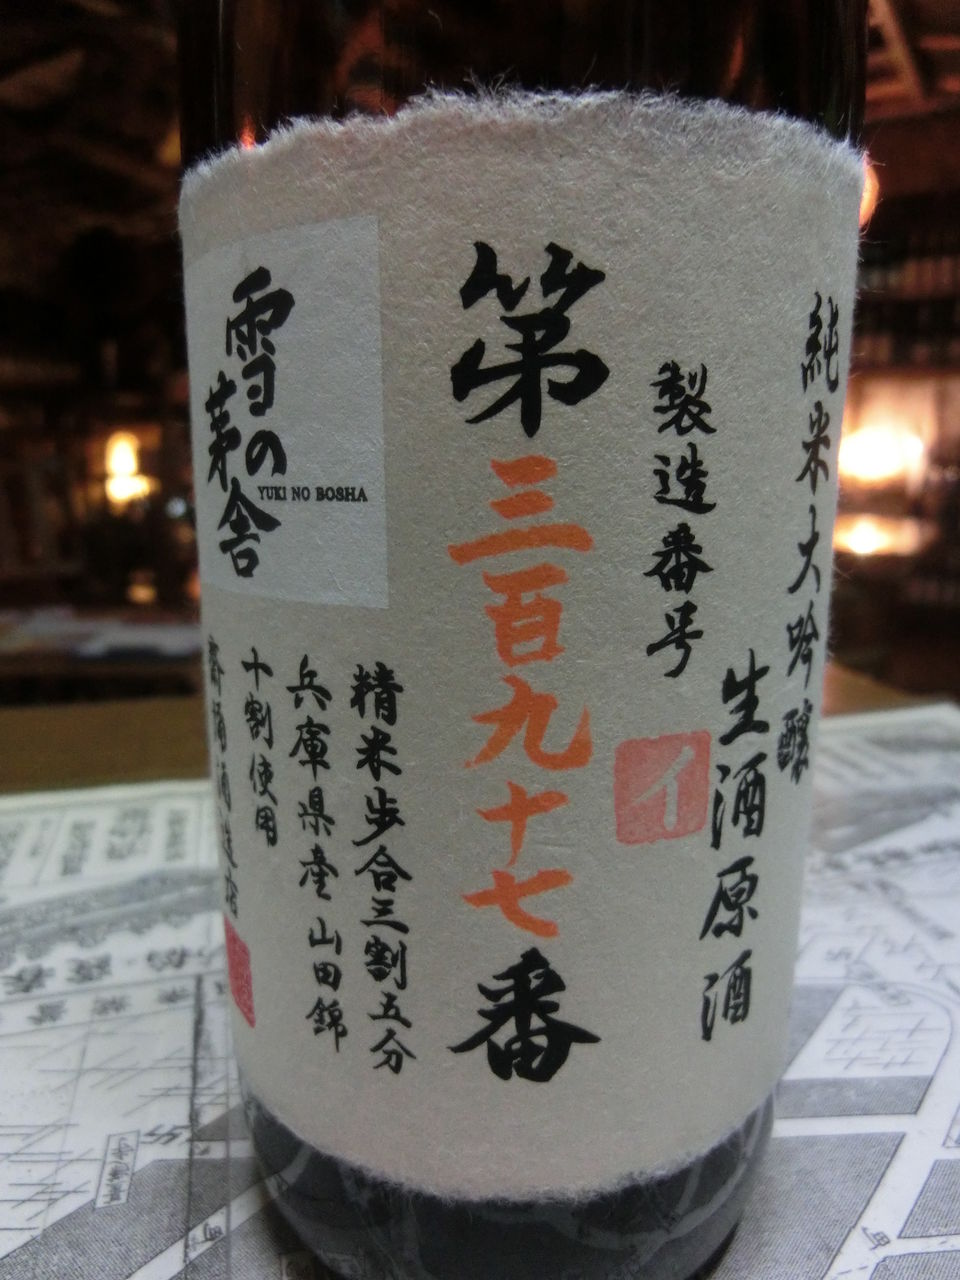 純米大吟醸
生酒原酒
製造番号
イ
第三百九十七番
精米歩合三割五分
兵庫県産山田錦
十割使用
雪の
茅舎
YUKI NO BOSHA
齋彌酒造店